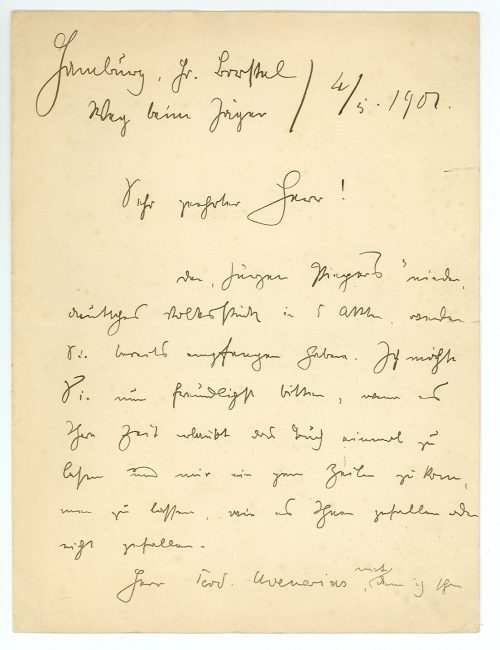 Hamburg, Gr. Borstel / 4/5. 1901.
Weg beim Jäger
Sehr geehrter Herr!
den „Jürgen Piepers“ nieder-
deutsches Volksstück in 5 Akten, werden
Sie bereits empfangen haben. Ich möchte
Sie nun freundlichst bitten, wenn es
Ihre Zeit erlaubt das Buch einmal zu
lesen und mir ein paar Zeilen zu kom-
men zu lassen, wie es Ihnen gefallen oder
nicht gefallen.
Herr Ferd. Avenarius, mit dem ich Ihn